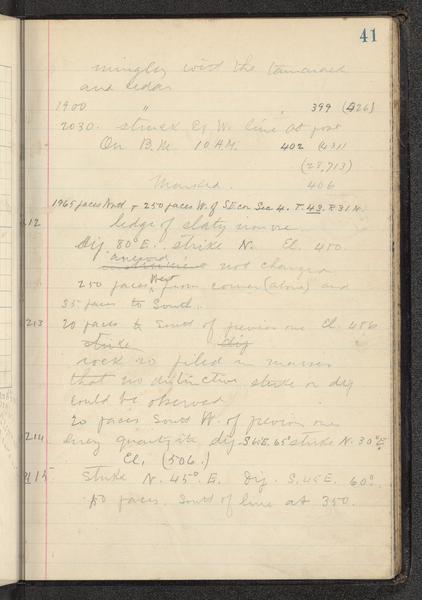 41
mingles with the tamarack
and cedar
1900 " " 399 (426)
2030. struck E & W. line at post
On B.M. 10 A.M. 402 (431)
(28,713)
406
1965 paces North + 250 paces W. of SE cor Sec 4. T. 43. R 31 W.
212 ledge of slaty iron ore
Dip 80° E. strike N. El. 450.
aneroid not changed
250 paces West from corner (above) and
35 paces to South.
213 20 paces to South of previous one El. 456
strike dip
rock so piled in masses
that no distinctive strike or dip
could be observed
20 paces South W. of previous one
214 Grey quartzite dip S 61 E. 65° strike N. 30° E
El. (506.)
2115 Strike N. 45° E. Dip. S. 45 E. 60°.
10 paces South of line at 350.